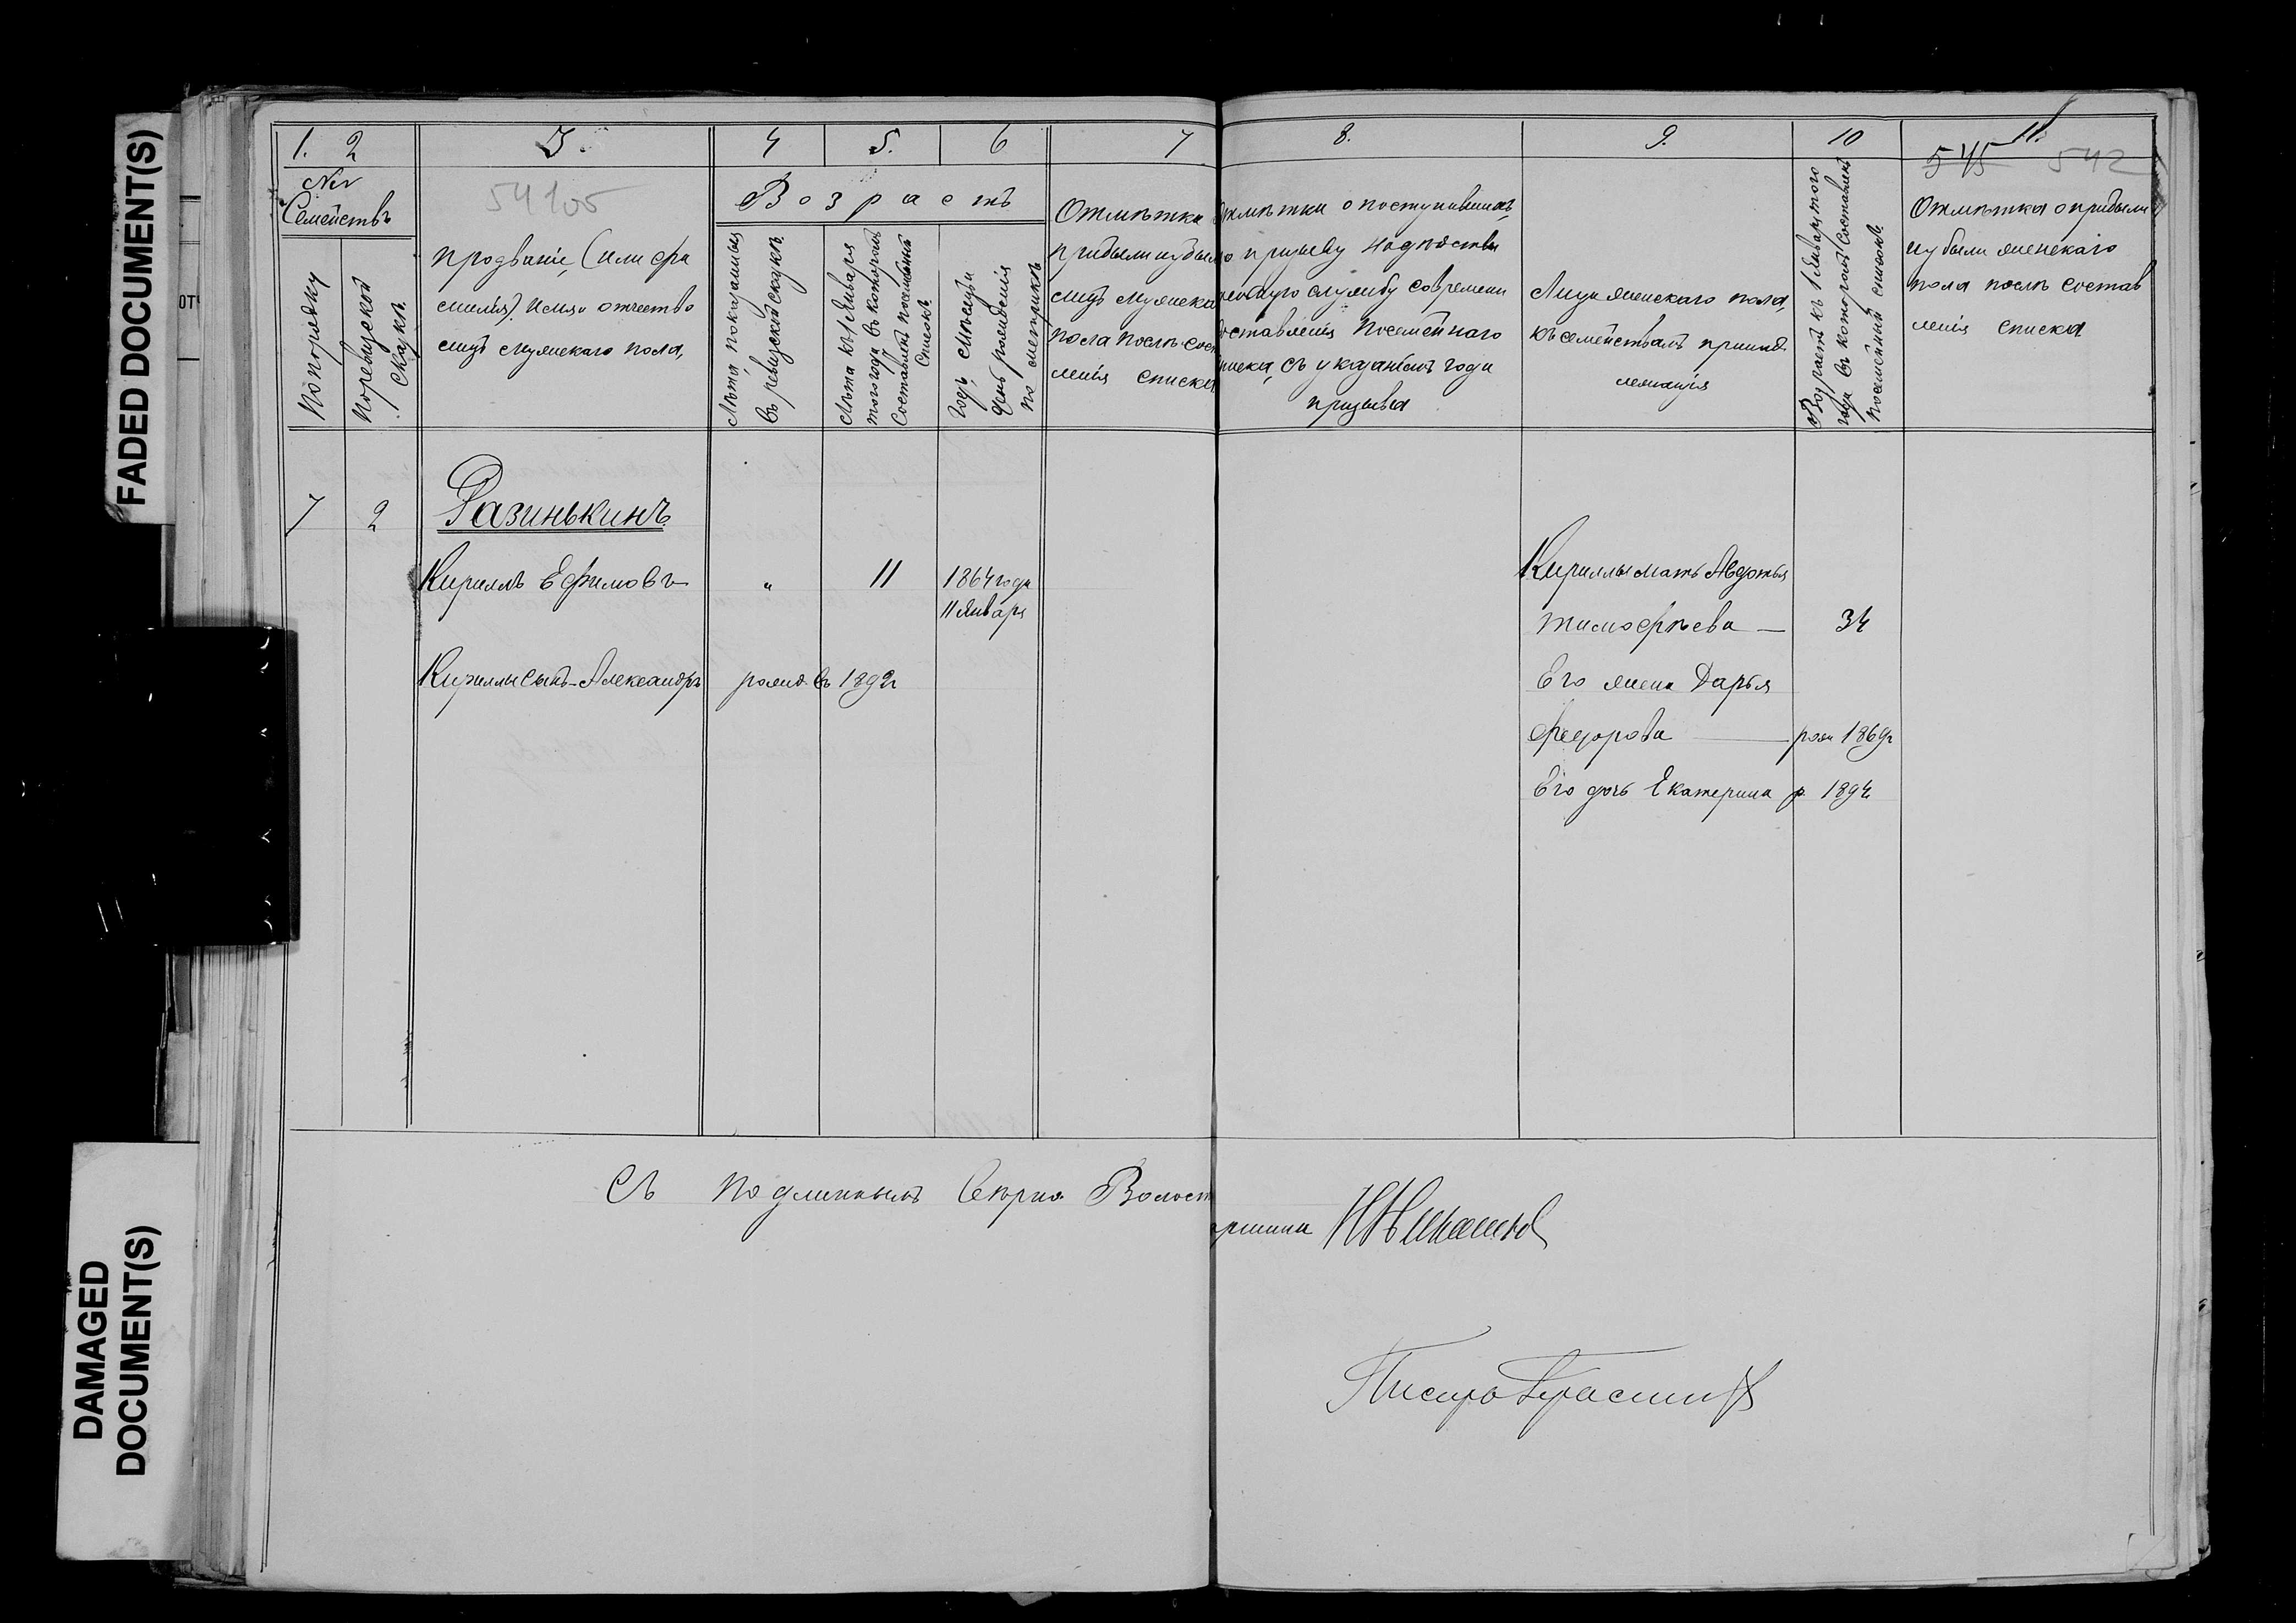 FADED DOCUMENT(S)
DAMAGED
DOCUMENT(S)
1. 2 3. 4 5. 6 7 8. 9. 10 11.
545 542
54105
№№
Семействъ
По порядку
По ревизской
сказкѣ
Прозваніе, (или фа
милія). Имя и отчество
лицъ мужскаго пола,
Возрастъ
Лѣта, показанныя
въ ревизской сказкѣ.
Лѣта къ 1 Января
того года въ которомъ
составленъ посемейный
списокъ
Годъ, мѣсяцъ и
день рожденія
по метрикѣ
Отмѣтка
прибыли и убыли
лицъ мужска
пола послѣ сост
ленія списка
Отмѣтки о поступившихъ
по призыву на дѣйстви
тельную службу со времени
составленія посемейнаго
списка, съ указаніемъ года
призыва
Лица женскаго пола,
къ семействамъ принад
лежащія
Возрастъ къ 1 Января того
года въ которомъ составленъ
посемейный списокъ
Отмѣтка о прибыли
и убыли женскаго
пола послѣ состав
ленія списка
7 2 Разинькинъ
Кириллъ Ефимовъ " 11 1864 года
11 Января
Кириллы сынъ - Александръ рожд. въ 1892г
Кириллы мать Авдотья
Тимофѣева — 34
Его жена Дарья
Федорова — рож 1869г
Его дочь Екатерина р. 1894
Съ подлиннымъ вѣрно Волост
аршина
Писарь